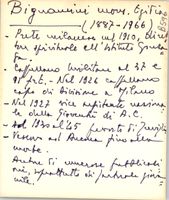 Bignamini mons. Egidio
(1887-1966)
- Prete milanese nel 1910, diret
tore spirituale all'Istituto Gonza
ga.
- Cappellano militare al 37 e
91 ftr. - Nel 1926 cappellano
capo di Divisione a Milano
- Nel 1927 vice assistente
della Gioventù di A.C.
- Dal 1930 al 45 prevosto di
- Vescovo ad Ancona fino alla
morte.
Autore di numerose pubblicazi
oni, soprattutto di